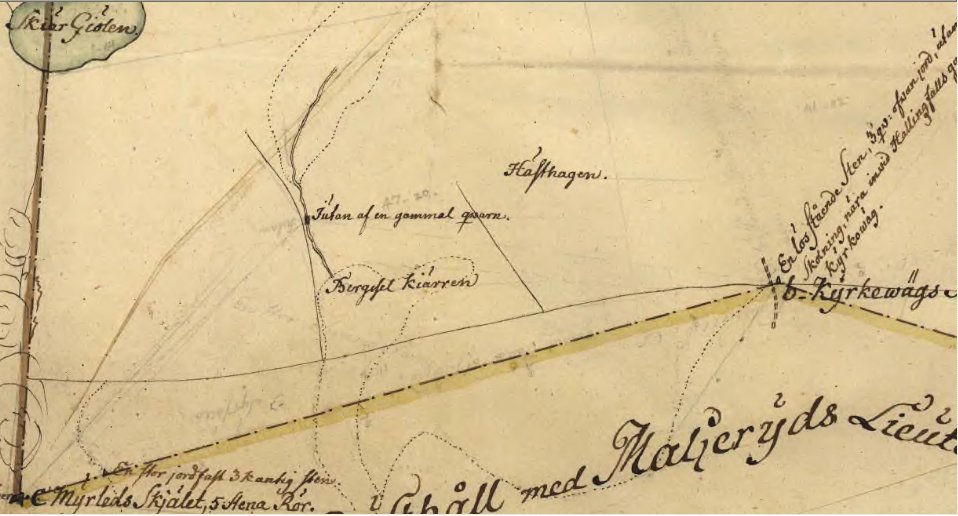 Skiär Giölen
Hästhagen.
Tùtan af en gammal qwarn.
Bergesel kiärren
En los stående Sten, 3 qv: ofwan jord, utan
Skolning, nära inwid Hallingfalls
Kyrkowäg.
b. Kyrkewägs
En stor jordfast 3 kantig sten
C Myrleds Skjälet, 5 stena Rör.
med Maljeryds Lieut